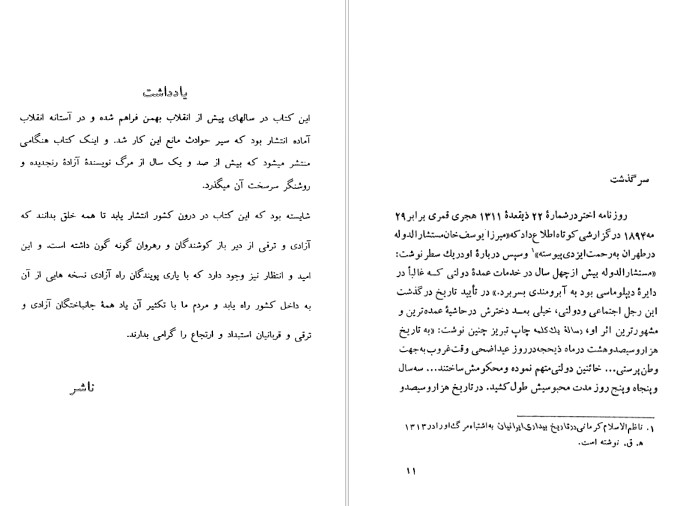 سرگذشت
روزنامه اختر در شمارهٔ ۲۲ ذیقعدهٔ ۱۳۱۱ هجری قمری برابر ۲۹
مه ۱۸۹۴ در گزارشی کوتاه اطلاع داد که «میرزا یوسف خان مستشارالدوله
در طهران به رحمت ایزدی پیوسته»۱ و سپس دربارهٔ او در یک سطر نوشت:
«مستشارالدوله بیش از چهل سال در خدمات عمدهٔ دولتی که غالباً در
دایرهٔ دیپلوماسی بود به آبرومندی بسر برد.» در تأیید تاریخ درگذشت
این رجل اجتماعی و دولتی، خیلی بعد دخترش در حاشیهٔ عمده‌ترین و
مشهورترین اثر او، رسالهٔ یک کلمه چاپ تبریز چنین نوشت: «به تاریخ
هزار و سیصد و هشت در ماه ذیحجه در روز عیداضحی وقت غروب به جهت
وطن پرستی... خائنین دولتی متهم نموده و محکومش ساختند... سه سال
و پنجاه و پنج روز مدت محبوسیش طول کشید. در تاریخ هزار و سیصد و
۱. ناظم‌الاسلام کرمانی در تاریخ بیداری ایرانیان به اشتباه مرگ او را در ۱۳۱۳
ه‍. ق. نوشته است.
۱۱
یادداشت
این کتاب در سالهای پیش از انقلاب بهمن فراهم شده و در آستانه انقلاب
آماده انتشار بود که سیر حوادث مانع این کار شد. و اینک کتاب هنگامی
منتشر میشود که بیش از صد و یک سال از مرگ نویسندهٔ آزادهٔ رنجدیده و
روشنگر سرسخت آن میگذرد.
شایسته بود که این کتاب در درون کشور انتشار یابد تا همه خلق بدانند که
آزادی و ترقی از دیر باز کوشندگان و رهروان گونه گون داشته است. و این
امید و انتظار نیز وجود دارد که با یاری پویندگان راه آزادی نسخه هایی از آن
به داخل کشور راه یابد و مردم ما با تکثیر آن یاد همهٔ جانباختگان آزادی و
ترقی و قربانیان استبداد و ارتجاع را گرامی بدارند.
ناشر